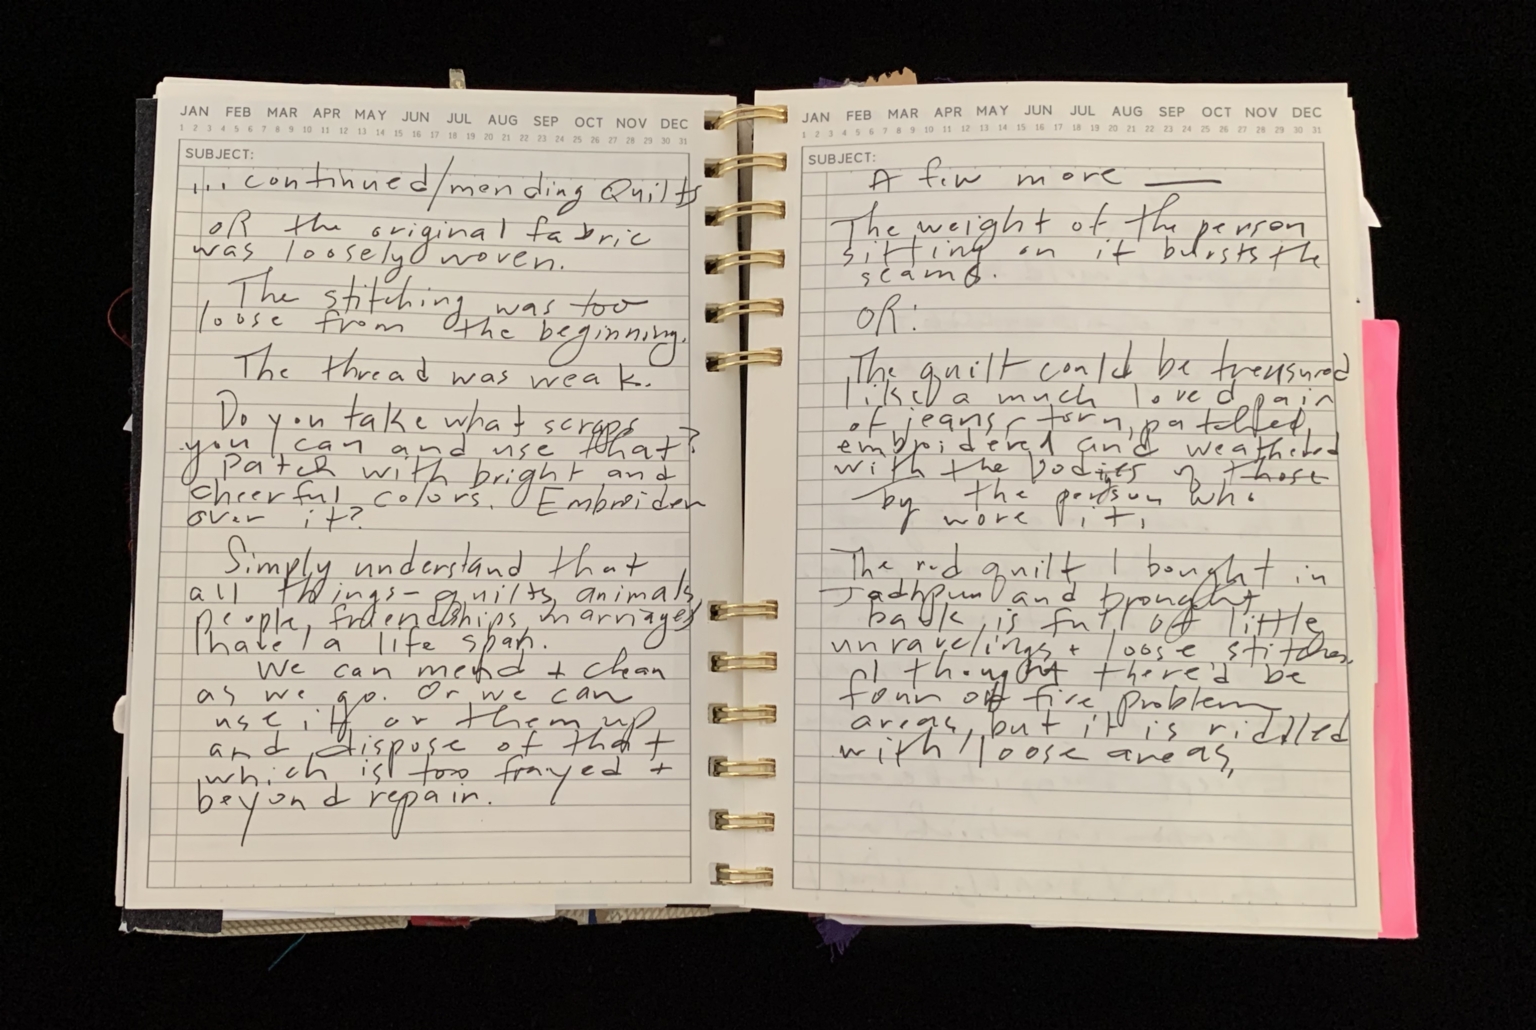 JAN FEB MAR APR MAY JUN JUL AUG SEP OCT NOV DEC
1 2 3 4 5 6 7 8 9 10 11 12 13 14 15 16 17 18 19 20 21 22 23 24 25 26 27 28 29 30 31
SUBJECT:
... continued/mending Quilts
OR the original fabric
was loosely woven.
The stitching was too
loose from the beginning.
The thread was weak.
Do you take what scraps
you can and use that?
Patch with bright and
cheerful colors. Embroider
over it?
Simply understand that
all things - quilts, animals,
people, friendships, marriages
have a life span.
We can mend + clean
as we go. Or we can
use it or them up
and dispose of that
which is too frayed +
beyond repair.
JAN FEB MAR APR MAY JUN JUL AUG SEP OCT NOV DEC
1 2 3 4 5 6 7 8 9 10 11 12 13 14 15 16 17 18 19 20 21 22 23 24 25 26 27 28 29 30 31
SUBJECT:
A few more
The weight of the person
sitting on it bursts the
seams.
OR:
The quilt could be treasured
like a much loved pair
of jeans - torn, patched,
embroidered and weathered
with the bodies of those
by the person who
wore it.
The red quilt I bought in
Jadhpur and brought
back is full of little
unravelings + loose stitches.
I thought there'd be
four or five problem
areas, but it is riddled
with loose areas,